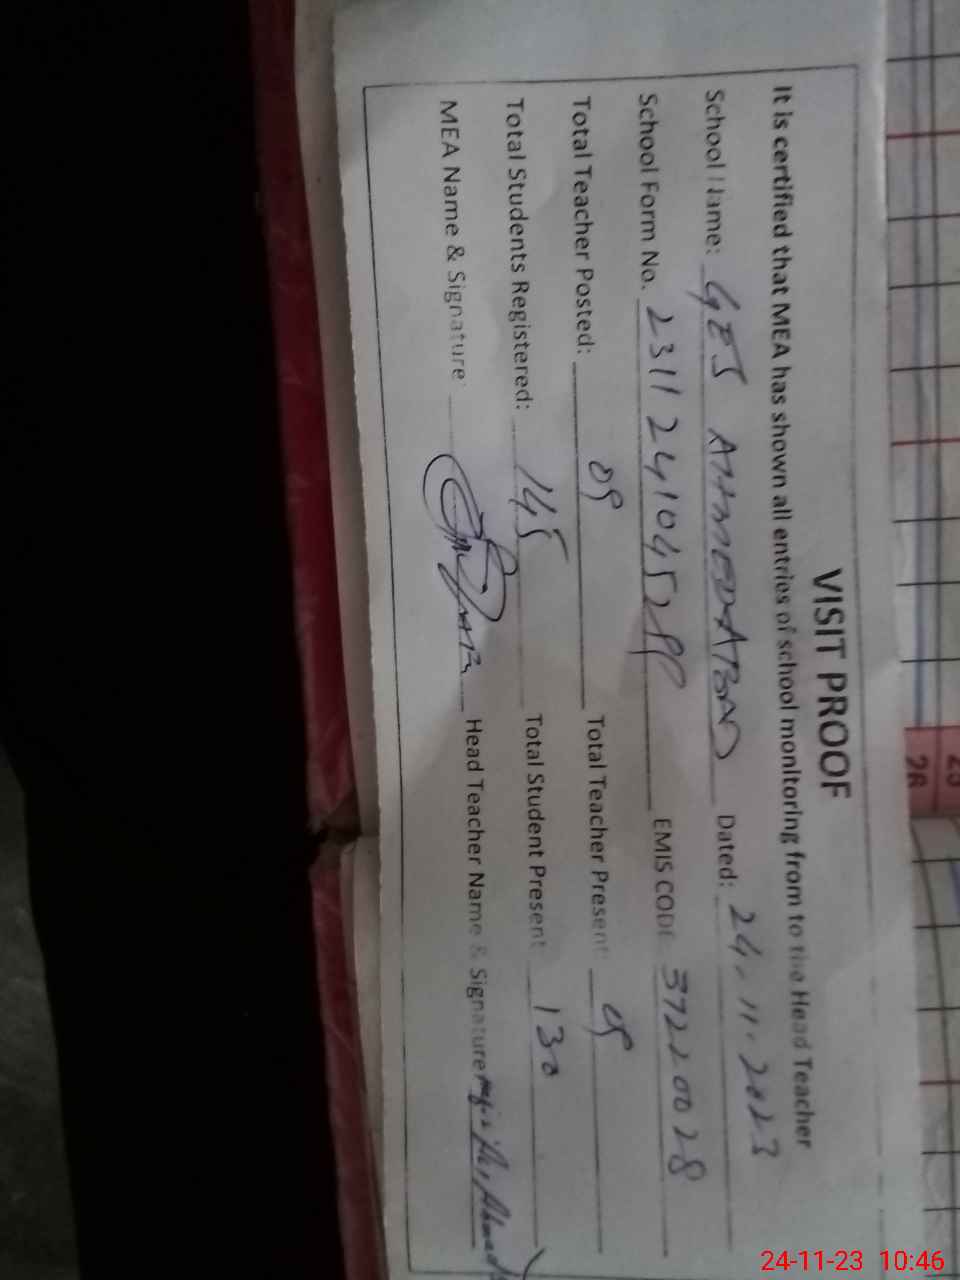 VISIT PROOF
It is certified that MEA has shown all entries of school monitoring from to the Head Teacher
School Name: GES AHMEDABAD Dated: 24.11.2023
School Form No. 2311241045299 EMIS CODE 37220028
Total Teacher Posted: 09 Total Teacher Present: 09
Total Students Registered: 145 Total Student Present 130
MEA Name & Signature: Head Teacher Name & Signature Ahmad
26
24-11-23 10:46